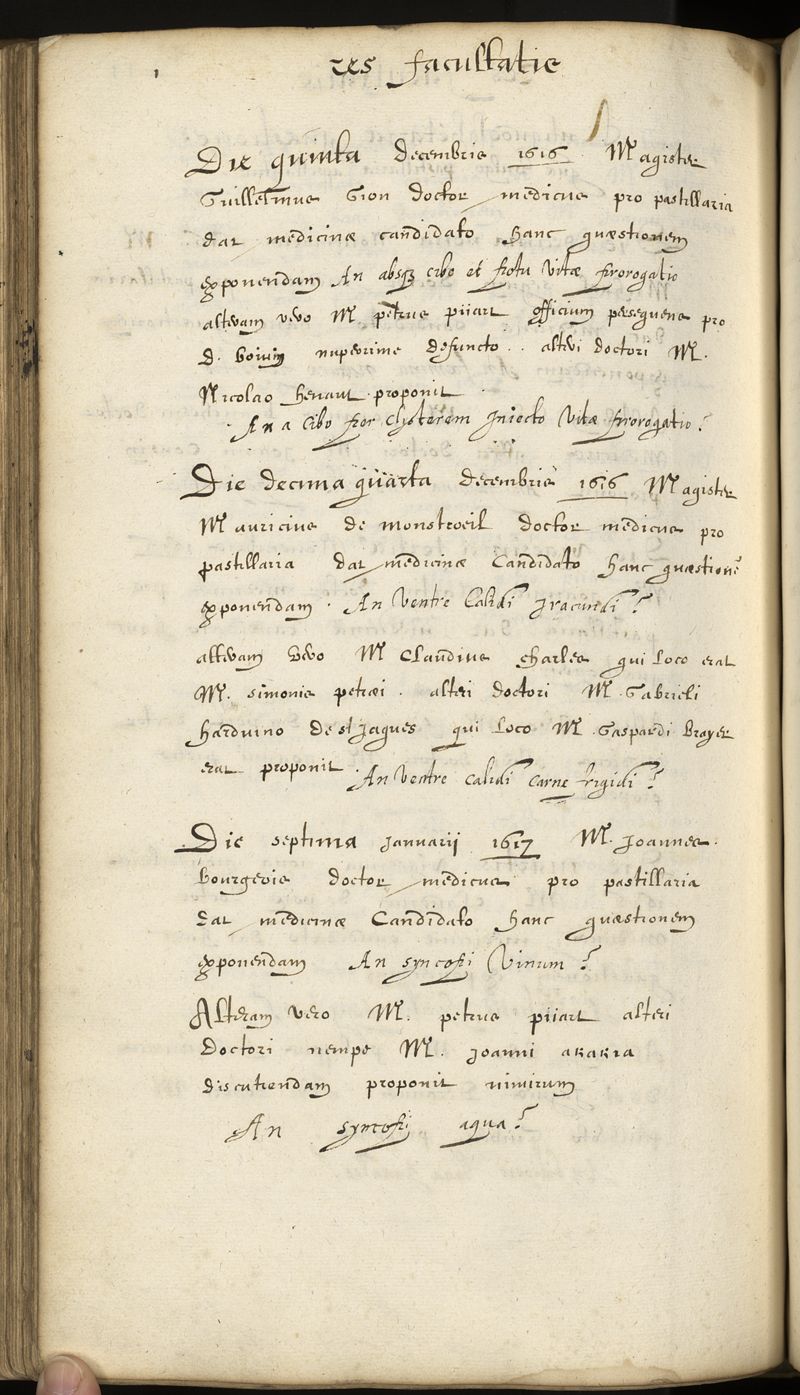 res facultatis
Die quinta decembris 1616 M agister
Guillelmus Gion doctor medicus pro pastillaria
dat medicinæ candidato hanc quæstionem
exponendam An absq; cibo et potu vitæ prorogatio
alteram vero M. petrus piiart officium persequens pro
d. bovin nuperrime defuncto . . alteri doctori M.
Nicolao henaut proponit
An a cibo per clysterem Iniecto Vitæ prorogatio ?
Die decima quarta decembris 1616 M agister
M auricius de monstroeil doctor medicus pro
pastillaria dat medicinæ candidato hanc quæstionē
exponendam . An Ventre calidi Iracundi ?
alteram vero M Claudius charles qui loco erat
M. simonis petræi . alteri doctori M. Gabrieli
harduino de st Jaques qui loco M. Gaspardi brayer
erat proponit . An Ventre calidi carne frigidi ?
Die septima Januarij 1617 M. Joannes .
bourgeois doctor medicus pro pastillaria
dat medicinæ candidato hanc quæstionem
exponendam An syncopi Vinum ?
Alteram vero M. petrus piiart alteri
doctori nempe M. Joanni akakia
discutiendam proponit nimirum
An syncopi aqua ?